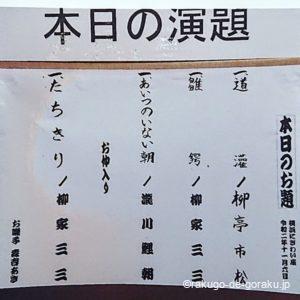 本日の演題
本日のお題
横浜にぎわい座
令和二年十一月六日
一道灌ノ柳亭市松
一雛鍔ノ柳家三三
一あいつのいない朝ノ瀧川鯉朝
お仲入り
一たちきりノ柳家三三
©rakugo-de-goraku.jp